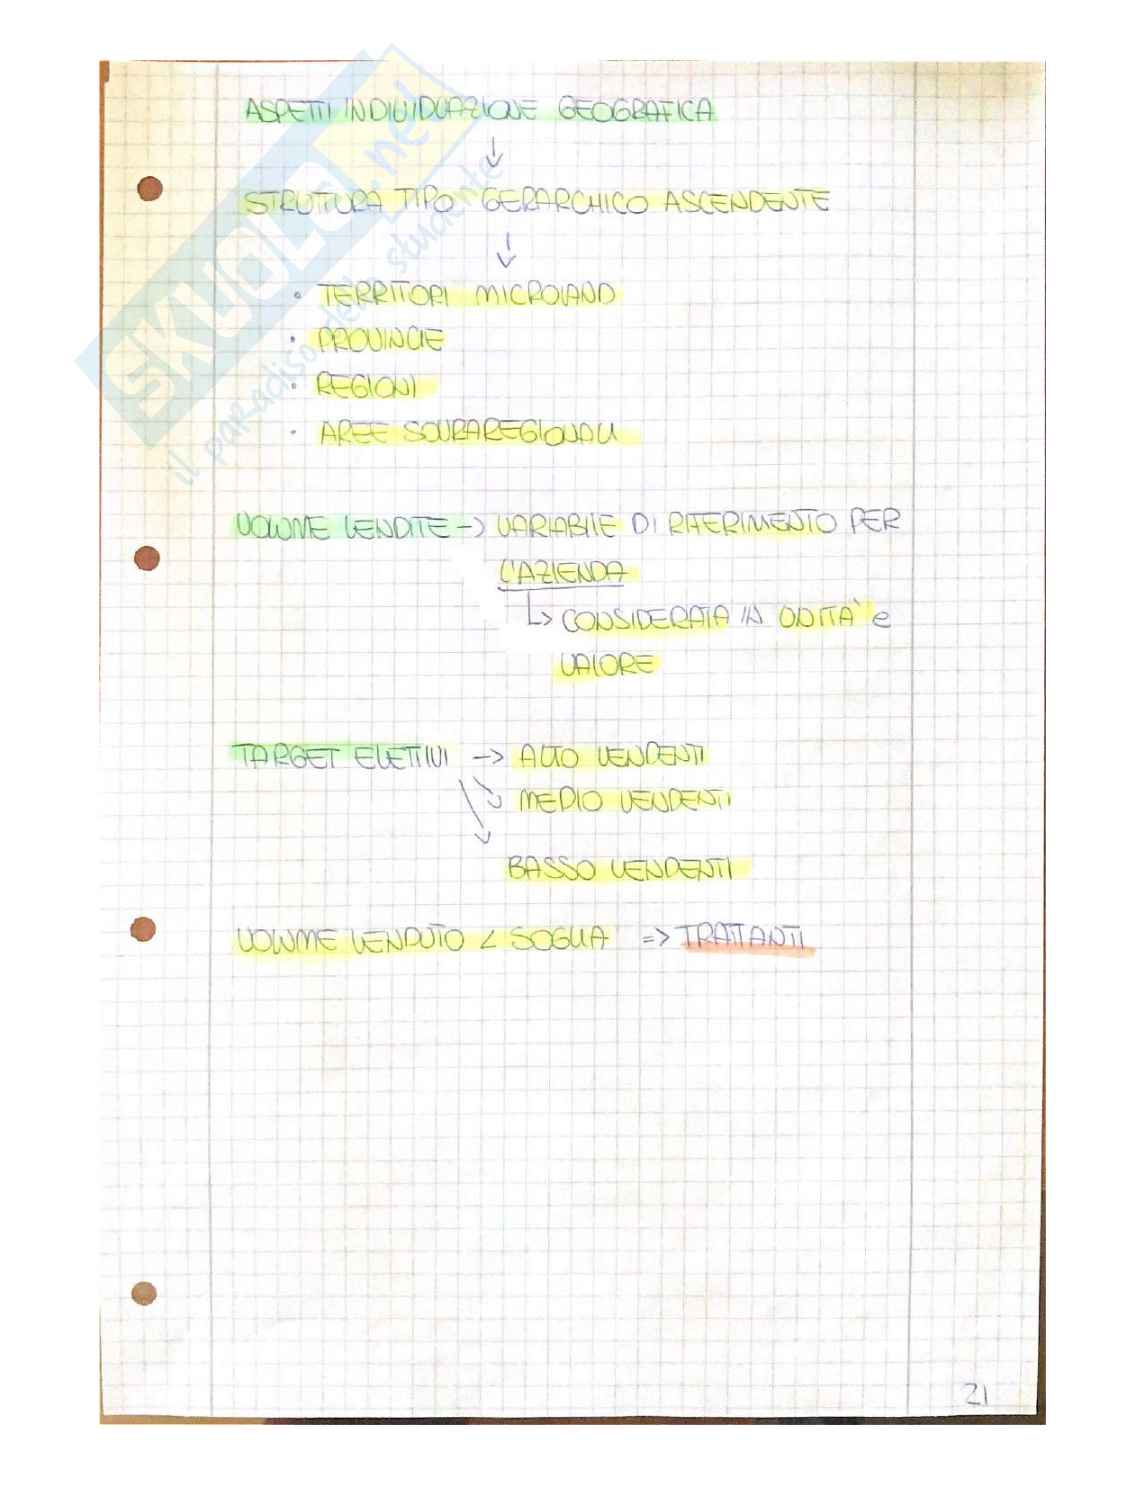 ASPETTI INDIVIDUAZIONE GEOGRAFICA
↓
STRUTTURA TIPO GERARCHICO ASCENDENTE
↓
• TERRITORI MICROLAND
• PROVINCIE
• REGIONI
• AREE SOVRAREGIONALI
VOLUME VENDITE -> VARIABILE DI RIFERIMENTO PER
L'AZIENDA
↳ CONSIDERATA IN UNITÀ e
VALORE
TARGET ELETTIVI -> ALTO VENDENTI
↘ MEDIO VENDENTI
↘ BASSO VENDENTI
VOLUME VENDUTO < SOGLIA => TRATTANTI
21
SKUOLA.net
il paradiso dello studente